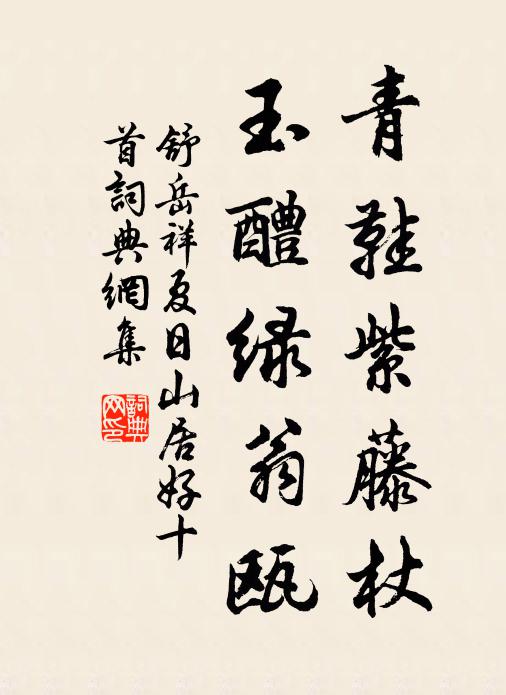 青鞋紫藤杖
玉醴緑翁甌
舒岳祥夏日山居好十
首詞典網集
詞典網印